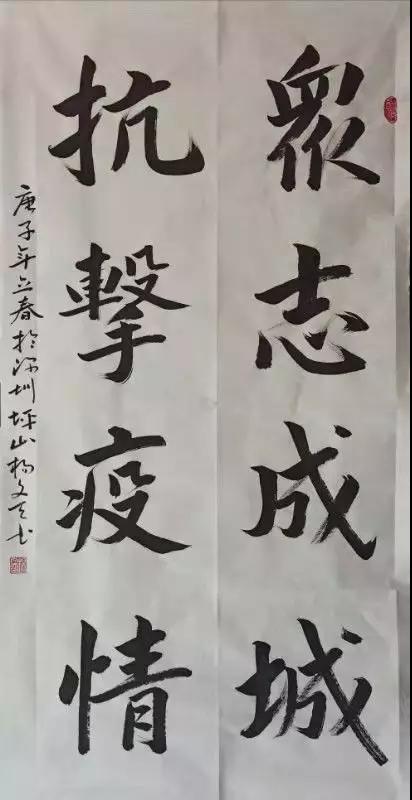 眾志成城
抗擊疫情
庚子年立春於深圳坪山楊文天书